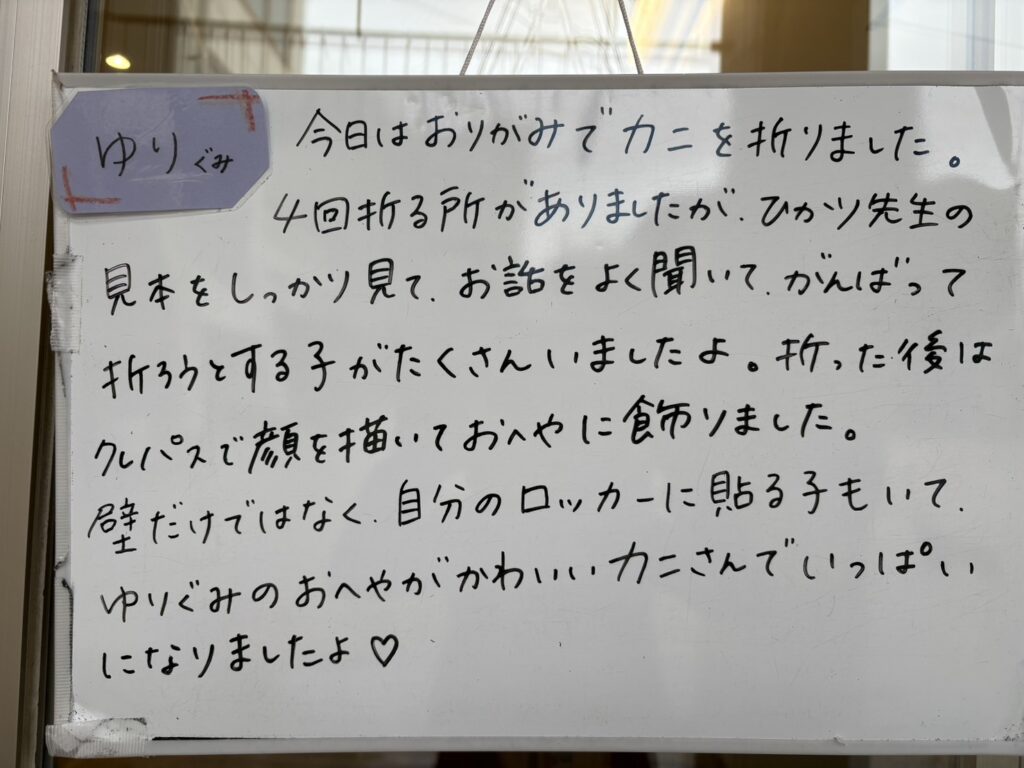 ゆりぐみ
今日はおりがみでカニを折りました。
4回折る所がありましたが、ひかり先生の
見本をしっかり見て、お話をよく聞いて、がんばって
折ろうとする子がたくさんいましたよ。折った後は
クレパスで顔を描いておへやに飾りました。
壁だけではなく、自分のロッカーに貼る子もいて、
ゆりぐみのおへやがかわいいカニさんでいっぱい
になりましたよ♡